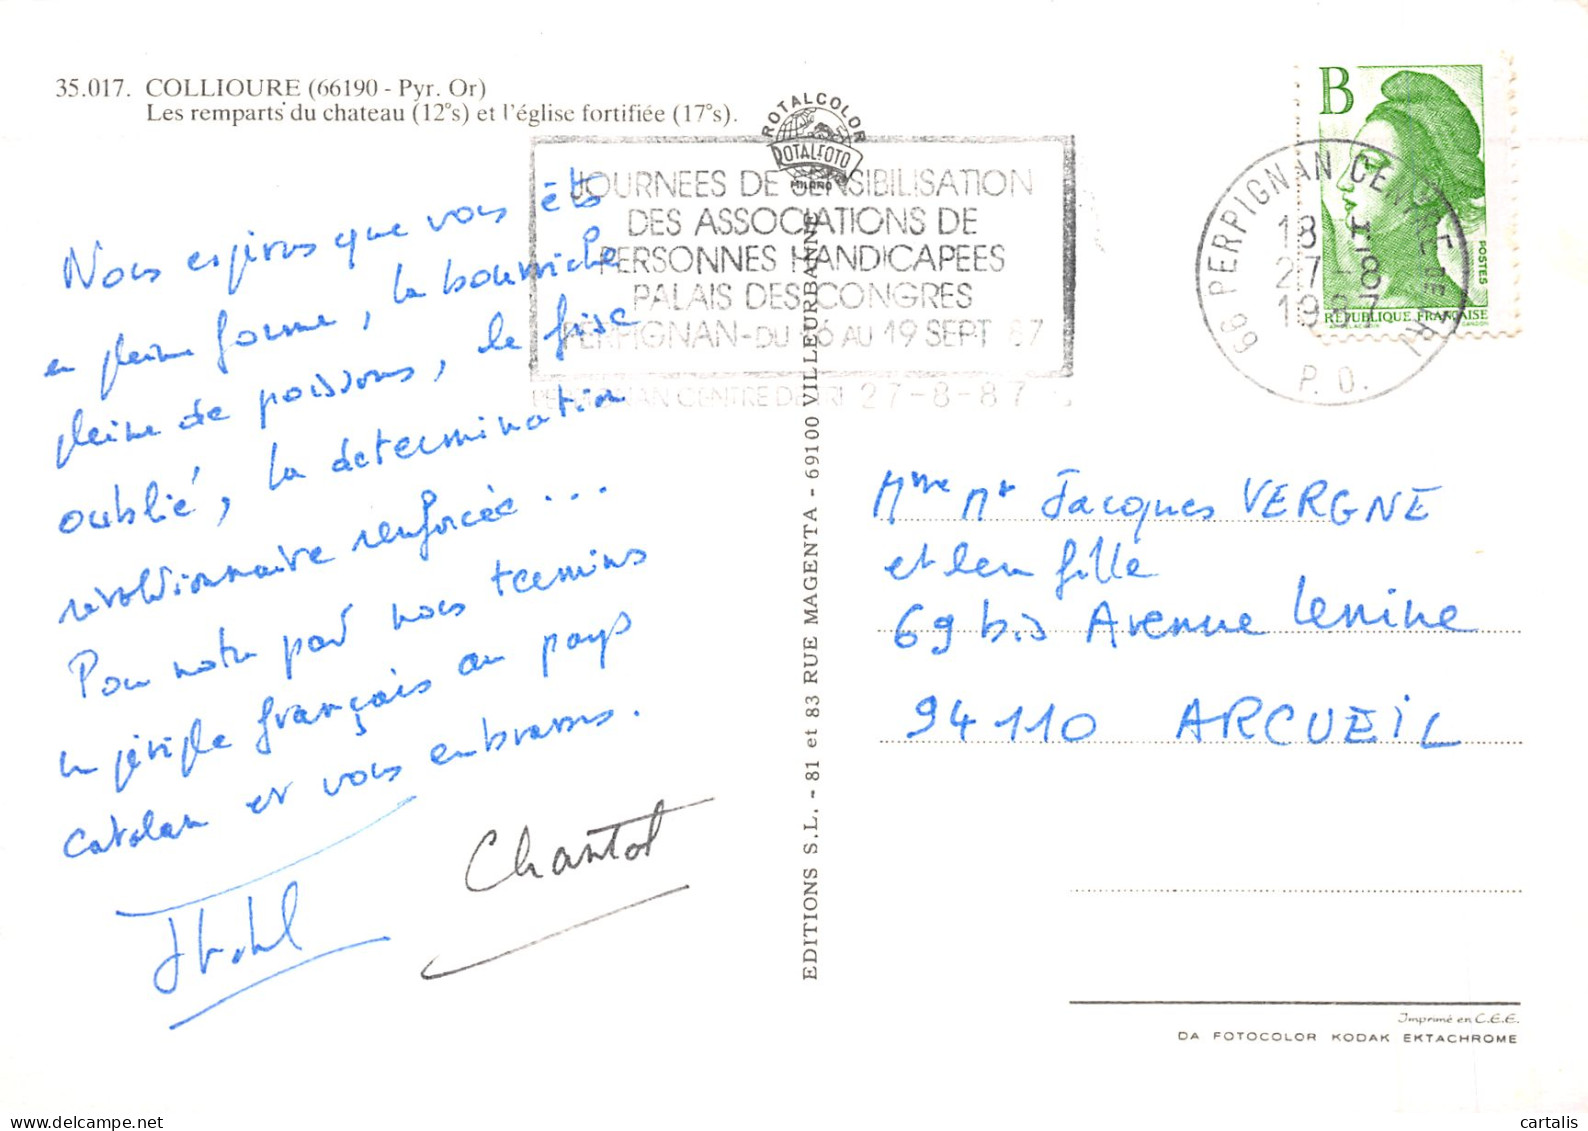 35.017. COLLIOURE (66190 - Pyr. Or)
Les remparts du chateau (12°s) et l'église fortifiée (17°s).
ROTALCOLOR
ROTALFOTO
MILANO
JOURNEES DE SENSIBILISATION
DES ASSOCIATIONS DE
PERSONNES HANDICAPEES
PALAIS DES CONGRES
PERPIGNAN-DU 16 AU 19 SEPT 87
PERPIGNAN CENTRE DE TRI 27-8-87
B
POSTES
REPUBLIQUE FRANÇAISE
GANDON
66 PERPIGNAN CENTRE DE TRI
18 H
27-8
1987
P.O.
Nous espérons que vous êts
en pleine forme, la bourriche
pleine de poissons, le fisc
oublié, la determination
révolutionnaire renforcée...
Pour notre part nous termins
un périple français au pays
Catalan et vous embrassons.
Chantal
EDITIONS S.L. - 81 et 83 RUE MAGENTA - 69100 VILLEURBANNE
Mme Mr Jacques VERGNE
et leur fille
69 bis Avenue Lenine
94110 ARCUEIL
Imprimé en C.E.E.
DA FOTOCOLOR KODAK EKTACHROME
cartalis
www.delcampe.net